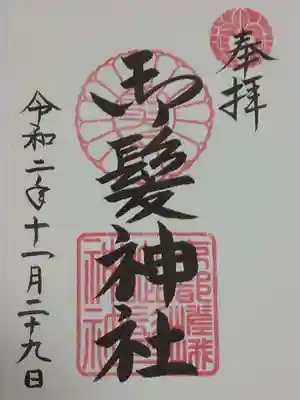 奉拝
御髪神社
令和二年十一月二十九日